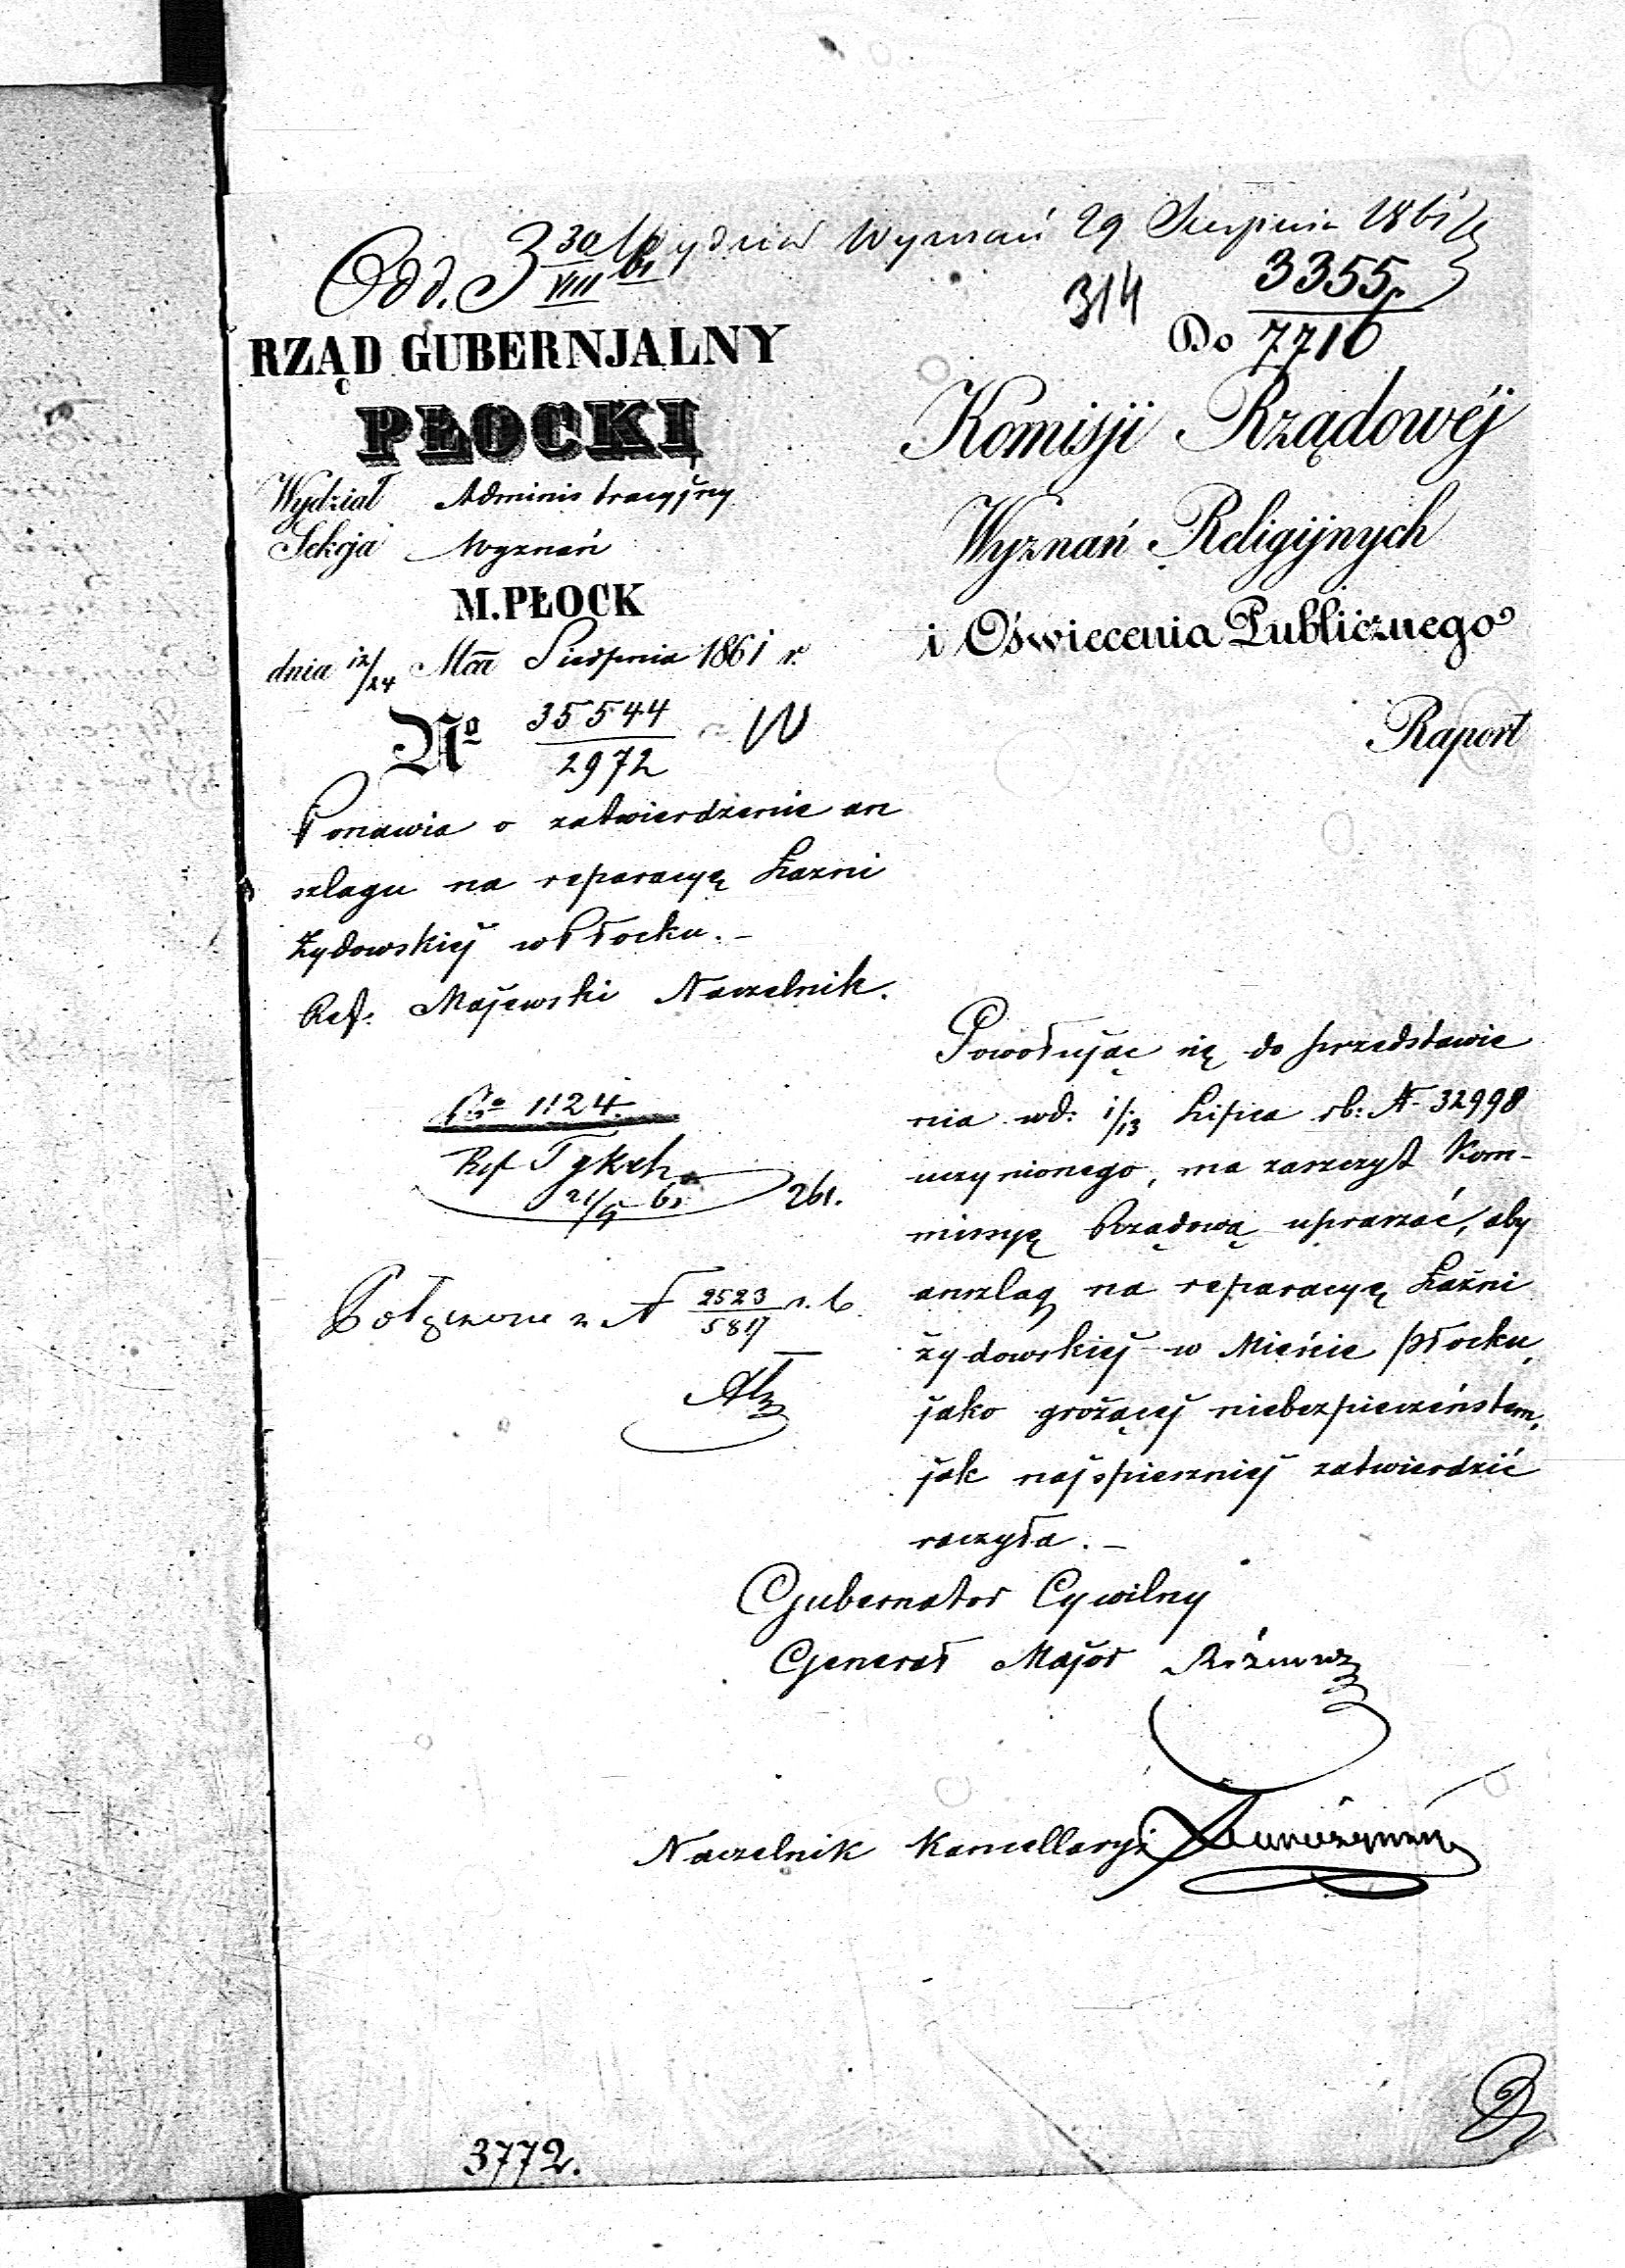 Wydział Wyznań 29 Sierpnia 1861
Odd. 3 30/VIII 61
314
3355
7716
RZĄD GUBERNJALNY
PŁOCKI
Wydział Administracyjny
Sekcja Wyznań
M. PŁOCK
dnia 12/24 Mca Sierpnia 1861 r.
No 35544/2972 W
Ponawia o zatwierdzenie an
szlagu na reparacyę Łazni
Żydowskiej w Płocku. –
Ref: Majewski Naczelnik.
1124.
Ref
261.
Połączone z N 2523/5817 r. b.
Do
Komisji Rządowéj
Wyznań Religijnych
i Oświecenia Publicznego
Raport
Powołując się do przedstawie
nia wd: 1/13 Lipca rb: N 32998
uczynionego, ma zaszczyt Kom-
missyę Rządową upraszać, aby
anszlag na reparacyę Łaźni
żydowskiej w Mieście Płocku,
jako grożącej niebezpieczeństem,
jak najspieszniej zatwierdzić
raczyła. –
Gubernator Cywilny
Generał Major
Naczelnik Kancellaryi
3772.